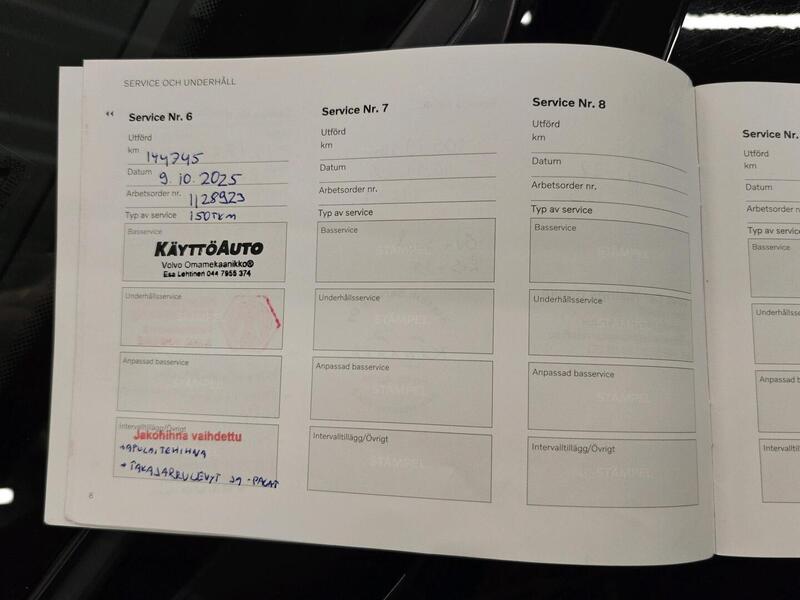 SERVICE OCH UNDERHÅLL
Service Nr. 6
Utförd
km 144745
Datum 9.10.2025
Arbetsorder nr. 1128923
Typ av service 150TKM
Basservice
KÄYTTÖAUTO
Volvo Omamekaanikko®
Esa Lehtinen 044 7955 374
Underhållsservice
Anpassad basservice
STÄMPEL
Intervalltillägg/Övrigt
Jakohihna vaihdettu
+APULAITEHIHNA
+ TAKAJARRULEVYT JA -PALAT
6
Service Nr. 7
Utförd
km
Datum
Arbetsorder nr.
Typ av service
Basservice
STÄMPEL
Underhållsservice
STÄMPEL
Anpassad basservice
STÄMPEL
Intervalltillägg/Övrigt
STÄMPEL
Service Nr. 8
Utförd
km
Datum
Arbetsorder nr.
Typ av service
Basservice
STÄMPEL
Underhållsservice
STÄMPEL
Anpassad basservice
STÄMPEL
Intervalltillägg/Övrigt
STÄMPEL
Service Nr.
Utförd
km
Datum
Arbetsorder nr
Typ av service
Basservice
Underhållsse
Anpassad b
Intervalltill